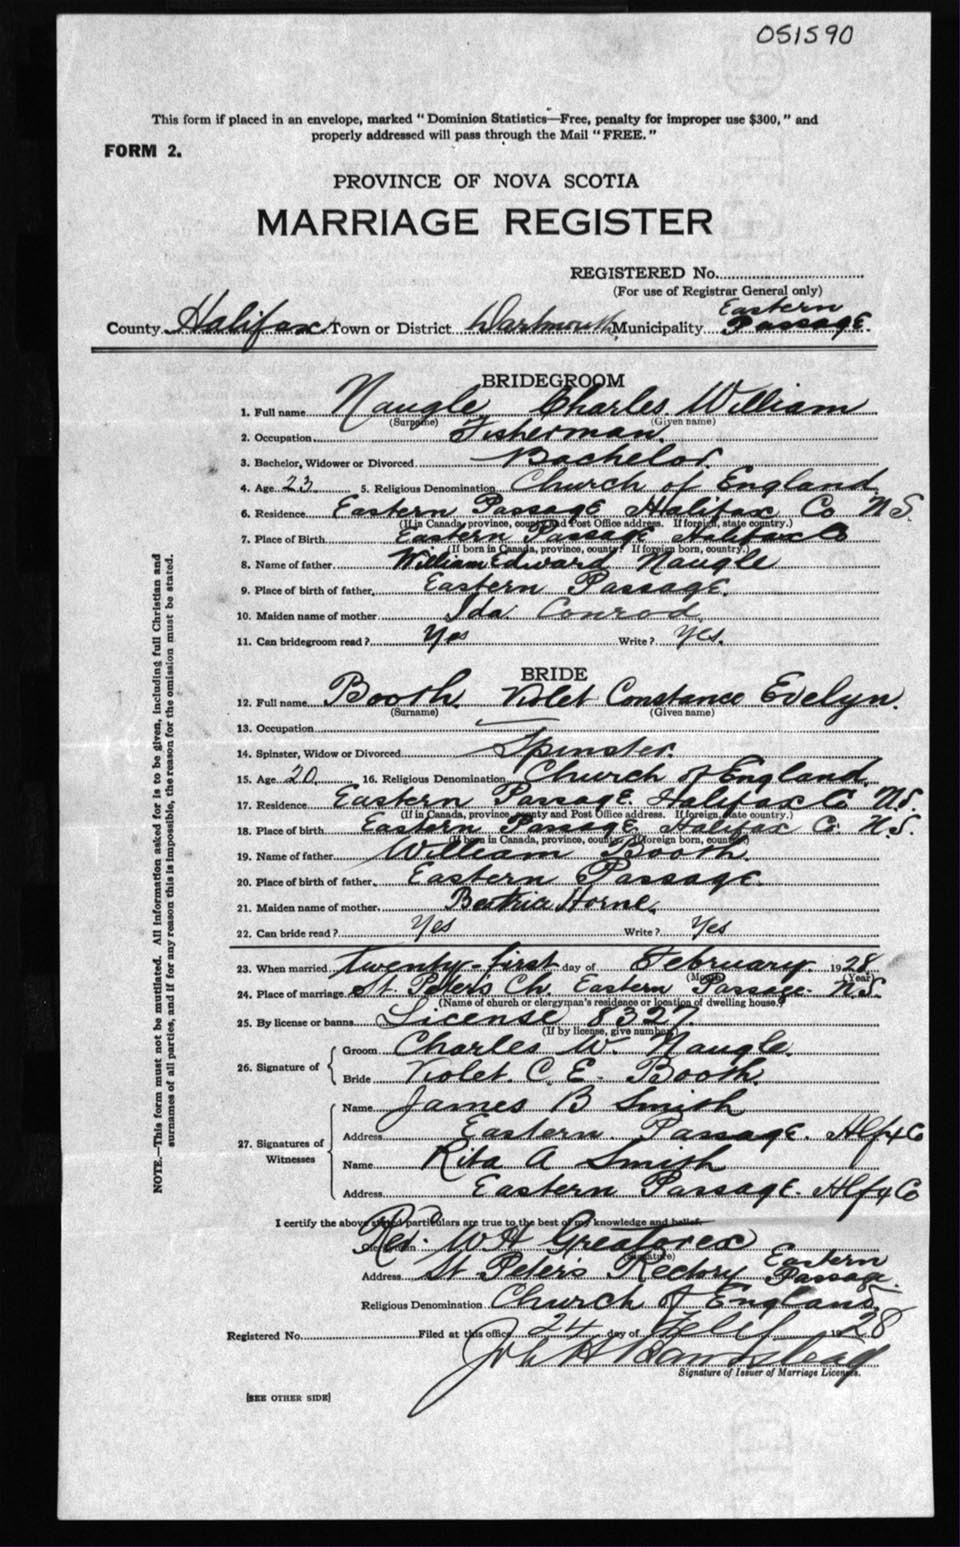 051590
This form if placed in an envelope, marked " Dominion Statistics—Free, penalty for improper use $300, " and
properly addressed will pass through the Mail " FREE. "
FORM 2.
PROVINCE OF NOVA SCOTIA
MARRIAGE REGISTER
REGISTERED No.
(For use of Registrar General only)
County Halifax Town or District Dartmouth Municipality Eastern Passage.
BRIDEGROOM
1. Full name Naugle Charles William
(Surname) (Given name)
2. Occupation Fisherman.
3. Bachelor, Widower or Divorced Bachelor.
4. Age 23 5. Religious Denomination Church of England
6. Residence Eastern Passage Halifax Co N.S.
(If in Canada, province, county and Post Office address. If foreign, state country.)
7. Place of Birth Eastern Passage Halifax Co
(If born in Canada, province, county. If foreign born, country.)
8. Name of father William Edward Naugle
9. Place of birth of father Eastern Passage.
10. Maiden name of mother Ida Conrod
11. Can bridegroom read? Yes Write? Yes.
BRIDE
12. Full name Booth. Violet Constance Evelyn.
(Surname) (Given name)
13. Occupation
14. Spinster, Widow or Divorced Spinster.
15. Age 20 16. Religious Denomination Church of England.
17. Residence Eastern Passage. Halifax Co N.S.
(If in Canada, province, county and Post Office address. If foreign, state country.)
18. Place of birth Eastern Passage, Halifax Co N.S.
(If born in Canada, province, county. If foreign born, country)
19. Name of father William Booth.
20. Place of birth of father Eastern Passage.
21. Maiden name of mother Beatrice Horne.
22. Can bride read? Yes Write? Yes
23. When married twenty-first day of February. 1928
(Month) (Year)
24. Place of marriage St. Peter's Ch. Eastern Passage. N.S.
(Name of church or clergyman's residence or location of dwelling house.)
25. By license or banns License 8327.
(If by license, give number)
26. Signature of Groom Charles W. Naugle.
Bride Violet. C. E. Booth.
27. Signatures of Witnesses Name James B Smith
Address Eastern Passage. Hlfx Co
Name Rita A Smith
Address Eastern Passage. Hlfx Co
I certify the above stated particulars are true to the best of my knowledge and belief.
Clergyman Rev. W H Greatorex
(Signature)
Address St Peters Rectory Eastern Passage.
Religious Denomination Church of England.
Registered No. Filed at this office 24 day of 1928
Signature of Issuer of Marriage Licenses.
[SEE OTHER SIDE]
NOTE.—This form must not be mutilated. All information asked for is to be given, including full Christian and
surnames of all parties, and if for any reason this is impossible, the reason for the omission must be stated.